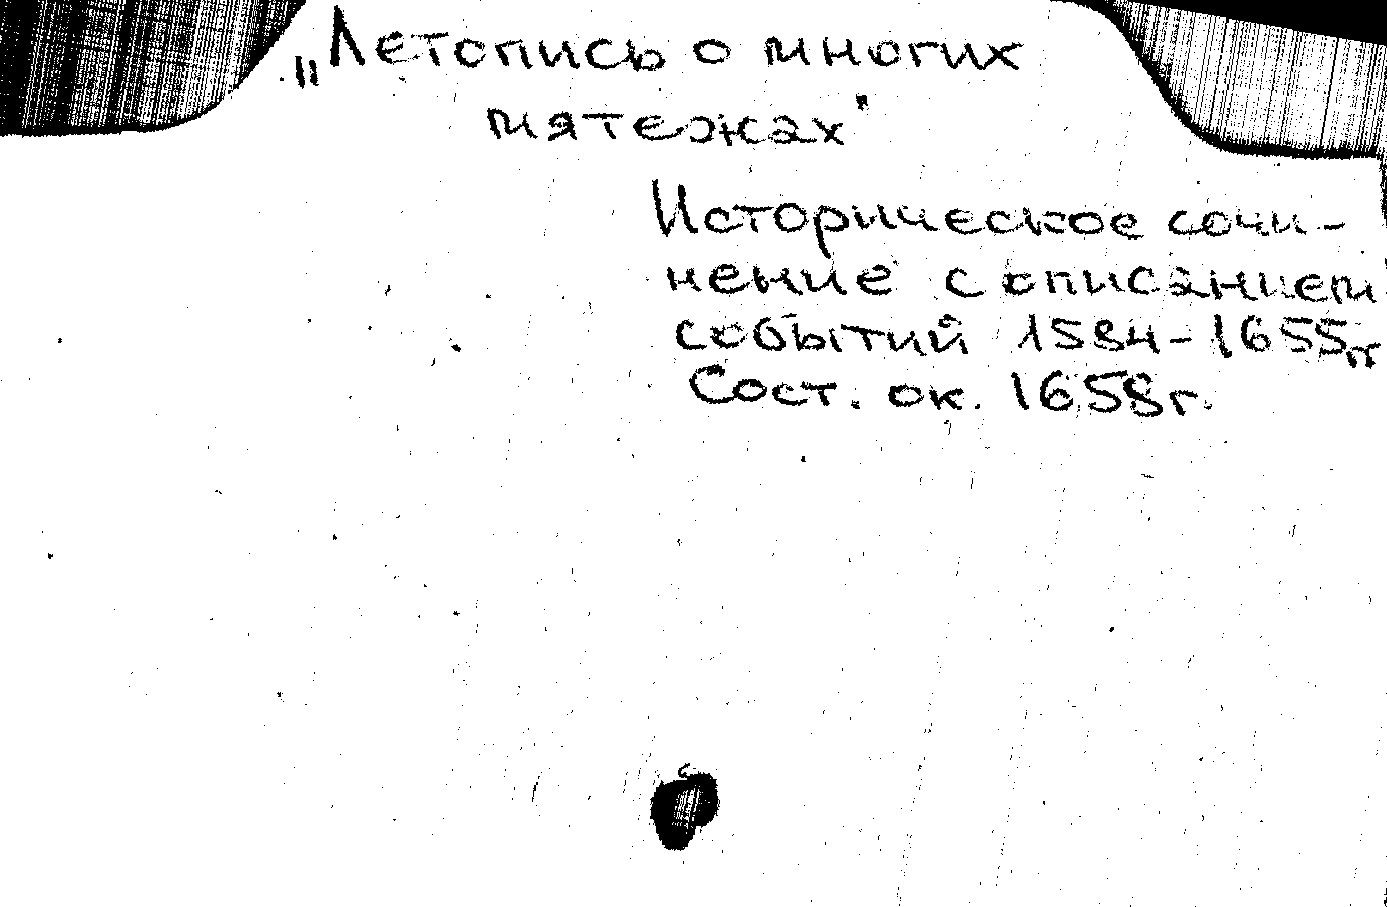 „Летопись о многих
мятежах"
Историческое сочи-
нение с описанием
событий 1584-1655гг
Сост. ок. 1658г.